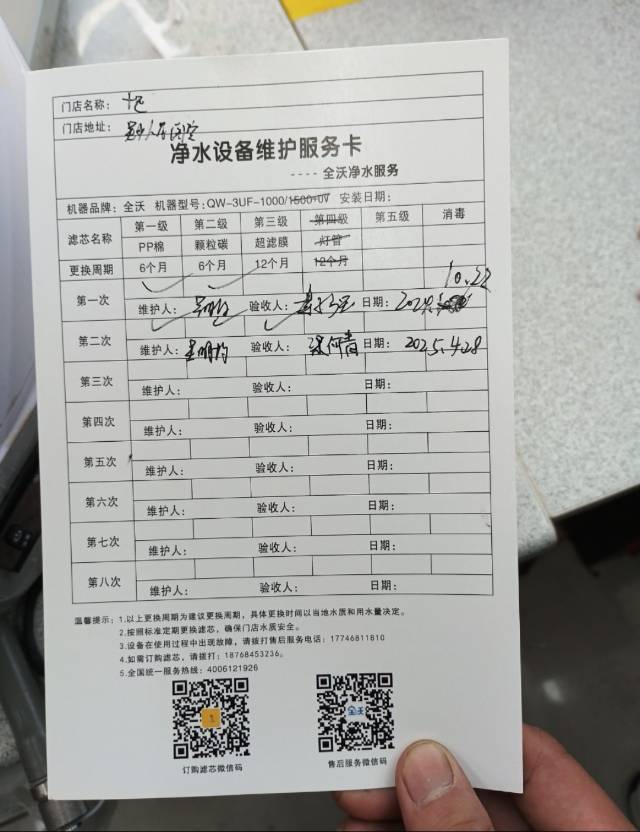 门店名称：
门店地址：
净水设备维护服务卡
----全沃净水服务
机器品牌：全沃 机器型号：QW-3UF-1000/1500+UV 安装日期：
滤芯名称 第一级 第二级 第三级 第四级 第五级 消毒
PP棉 颗粒碳 超滤膜 灯管
更换周期 6个月 6个月 12个月 12个月
10.28
第一次 维护人： 验收人： 日期：
第二次 维护人： 验收人： 日期：2025.4.28
第三次 维护人： 验收人： 日期：
第四次 维护人： 验收人： 日期：
第五次 维护人： 验收人： 日期：
第六次 维护人： 验收人： 日期：
第七次 维护人： 验收人： 日期：
第八次 维护人： 验收人： 日期：
温馨提示：1.以上更换周期为建议更换周期，具体更换时间以当地水质和用水量决定。
2.按照标准定期更换滤芯，确保门店水质安全。
3.设备在使用过程中出现故障，请拨打售后服务电话：17746811810
4.如需订购滤芯，请拨打：18768453236。
5.全国统一服务热线：4006121926
订购滤芯微信码 售后服务微信码
全沃